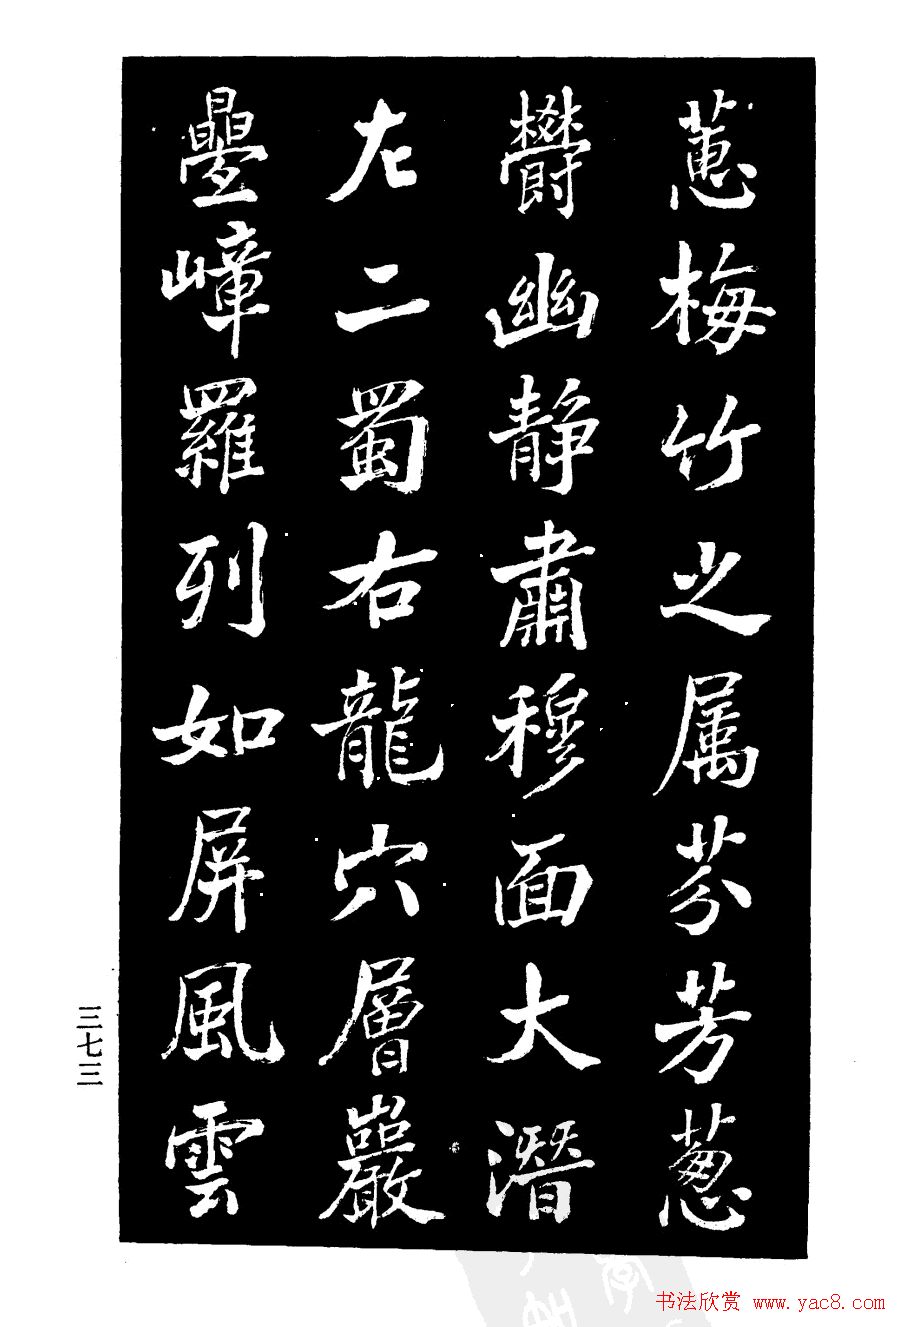 蕙梅竹之属芬芳葱
欝幽靜肅穆面大潛
左二蜀右龍穴層巖
疊嶂羅列如屏風雲
三七三
书法欣赏 www.yac8.com